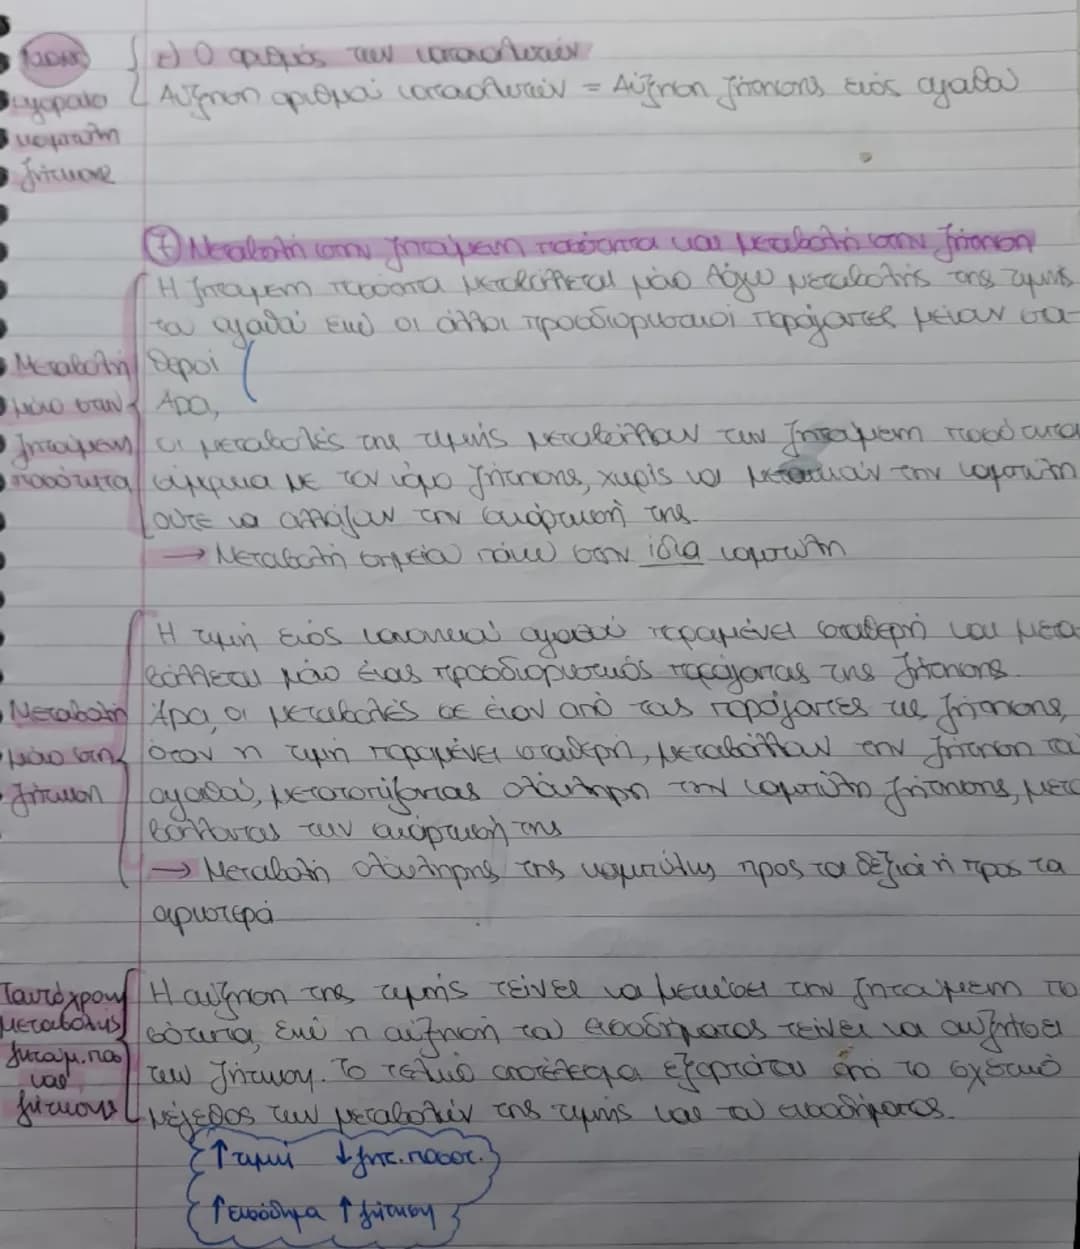 ε) Ο αριθμός των καταναλωτών
αγοραία Αύξηση αριθμού καταναλωτών = Αύξηση ζήτησης ενός αγαθού
καμπύλη
ζήτησης
⑦ Μεταβολή στην ζητούμενη ποσότητα και μεταβολή στην ζήτηση
Η ζητούμενη ποσότητα μεταβάλλεται μόνο λόγω μεταβολής της τιμής
του αγαθού ενώ οι άλλοι προσδιοριστικοί παράγοντες μείνουν στα-
Μεταβολή θεροί
μόνο στην Άρα,
ζητούμενη οι μεταβολές της τιμής μεταβάλλουν την ζητούμενη ποσότητα
ποσότητα σύμφωνα με τον νόμο ζήτησης, χωρίς να μετακινούν την καμπύλη
ούτε να αλλάζουν την συνάρτησή της.
→ Μεταβολή σημείου πάνω στην ίδια καμπύλη
Η τιμή ενός κανονικού αγαθού παραμένει σταθερή και μετα-
βάλλεται μόνο ένας προσδιοριστικός παράγοντας της ζήτησης.
Μεταβολή Άρα, οι μεταβολές σε έναν από τους παράγοντες της ζήτησης,
μόνο στη όταν η τιμή παραμένει σταθερή, μεταβάλλουν την ζήτηση του
ζήτηση αγαθού, μετατοπίζοντας ολόκληρη την καμπύλη ζήτησης, μετα
βάλλοντας την συνάρτησή της
→ Μεταβολή ολόκληρης της καμπύλης προς τα δεξιά ή προς τα
αριστερά
Ταυτόχρονη Η αύξηση της τιμής τείνει να μειώσει την ζητούμενη πο
μεταβολής σότητα, ενώ η αύξηση του εισοδήματος τείνει να αυξήσει
ζητουμ. πο την ζήτηση. Το τελικό αποτέλεσμα εξαρτάται από το σχετικό
και
ζήτησης μέγεθος των μεταβολών της τιμής και του εισοδήματος.
↑ τιμή ↓ ζητ. ποσοτ.
↑ εισόδημα ↑ ζήτηση